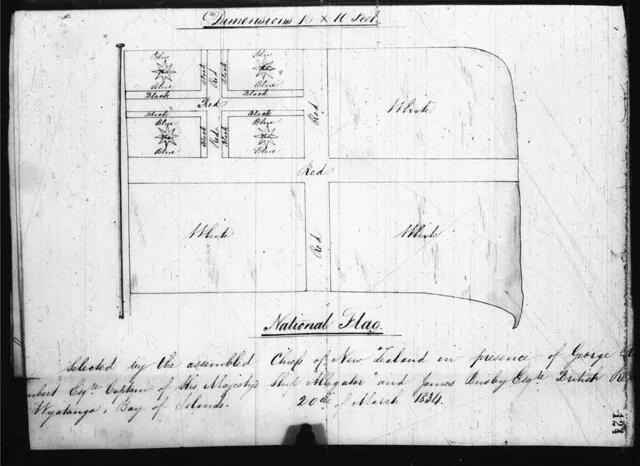 Dimensions 16 X 10 Feet.
Blue Blue
Black Red Black
Blue Blue
Black Black
Red
Black Black
Blue Blue
Black Red Black
Blue Blue
Red
White
Red
White
Red
White
National Flag.
Selected by the assembled Chiefs of New Zealand in presence of George
Esqre Captain of His Majesty's Ship "Alligator" and James Busby Esqre British
Bay of Islands. 20th of March 1834.
124